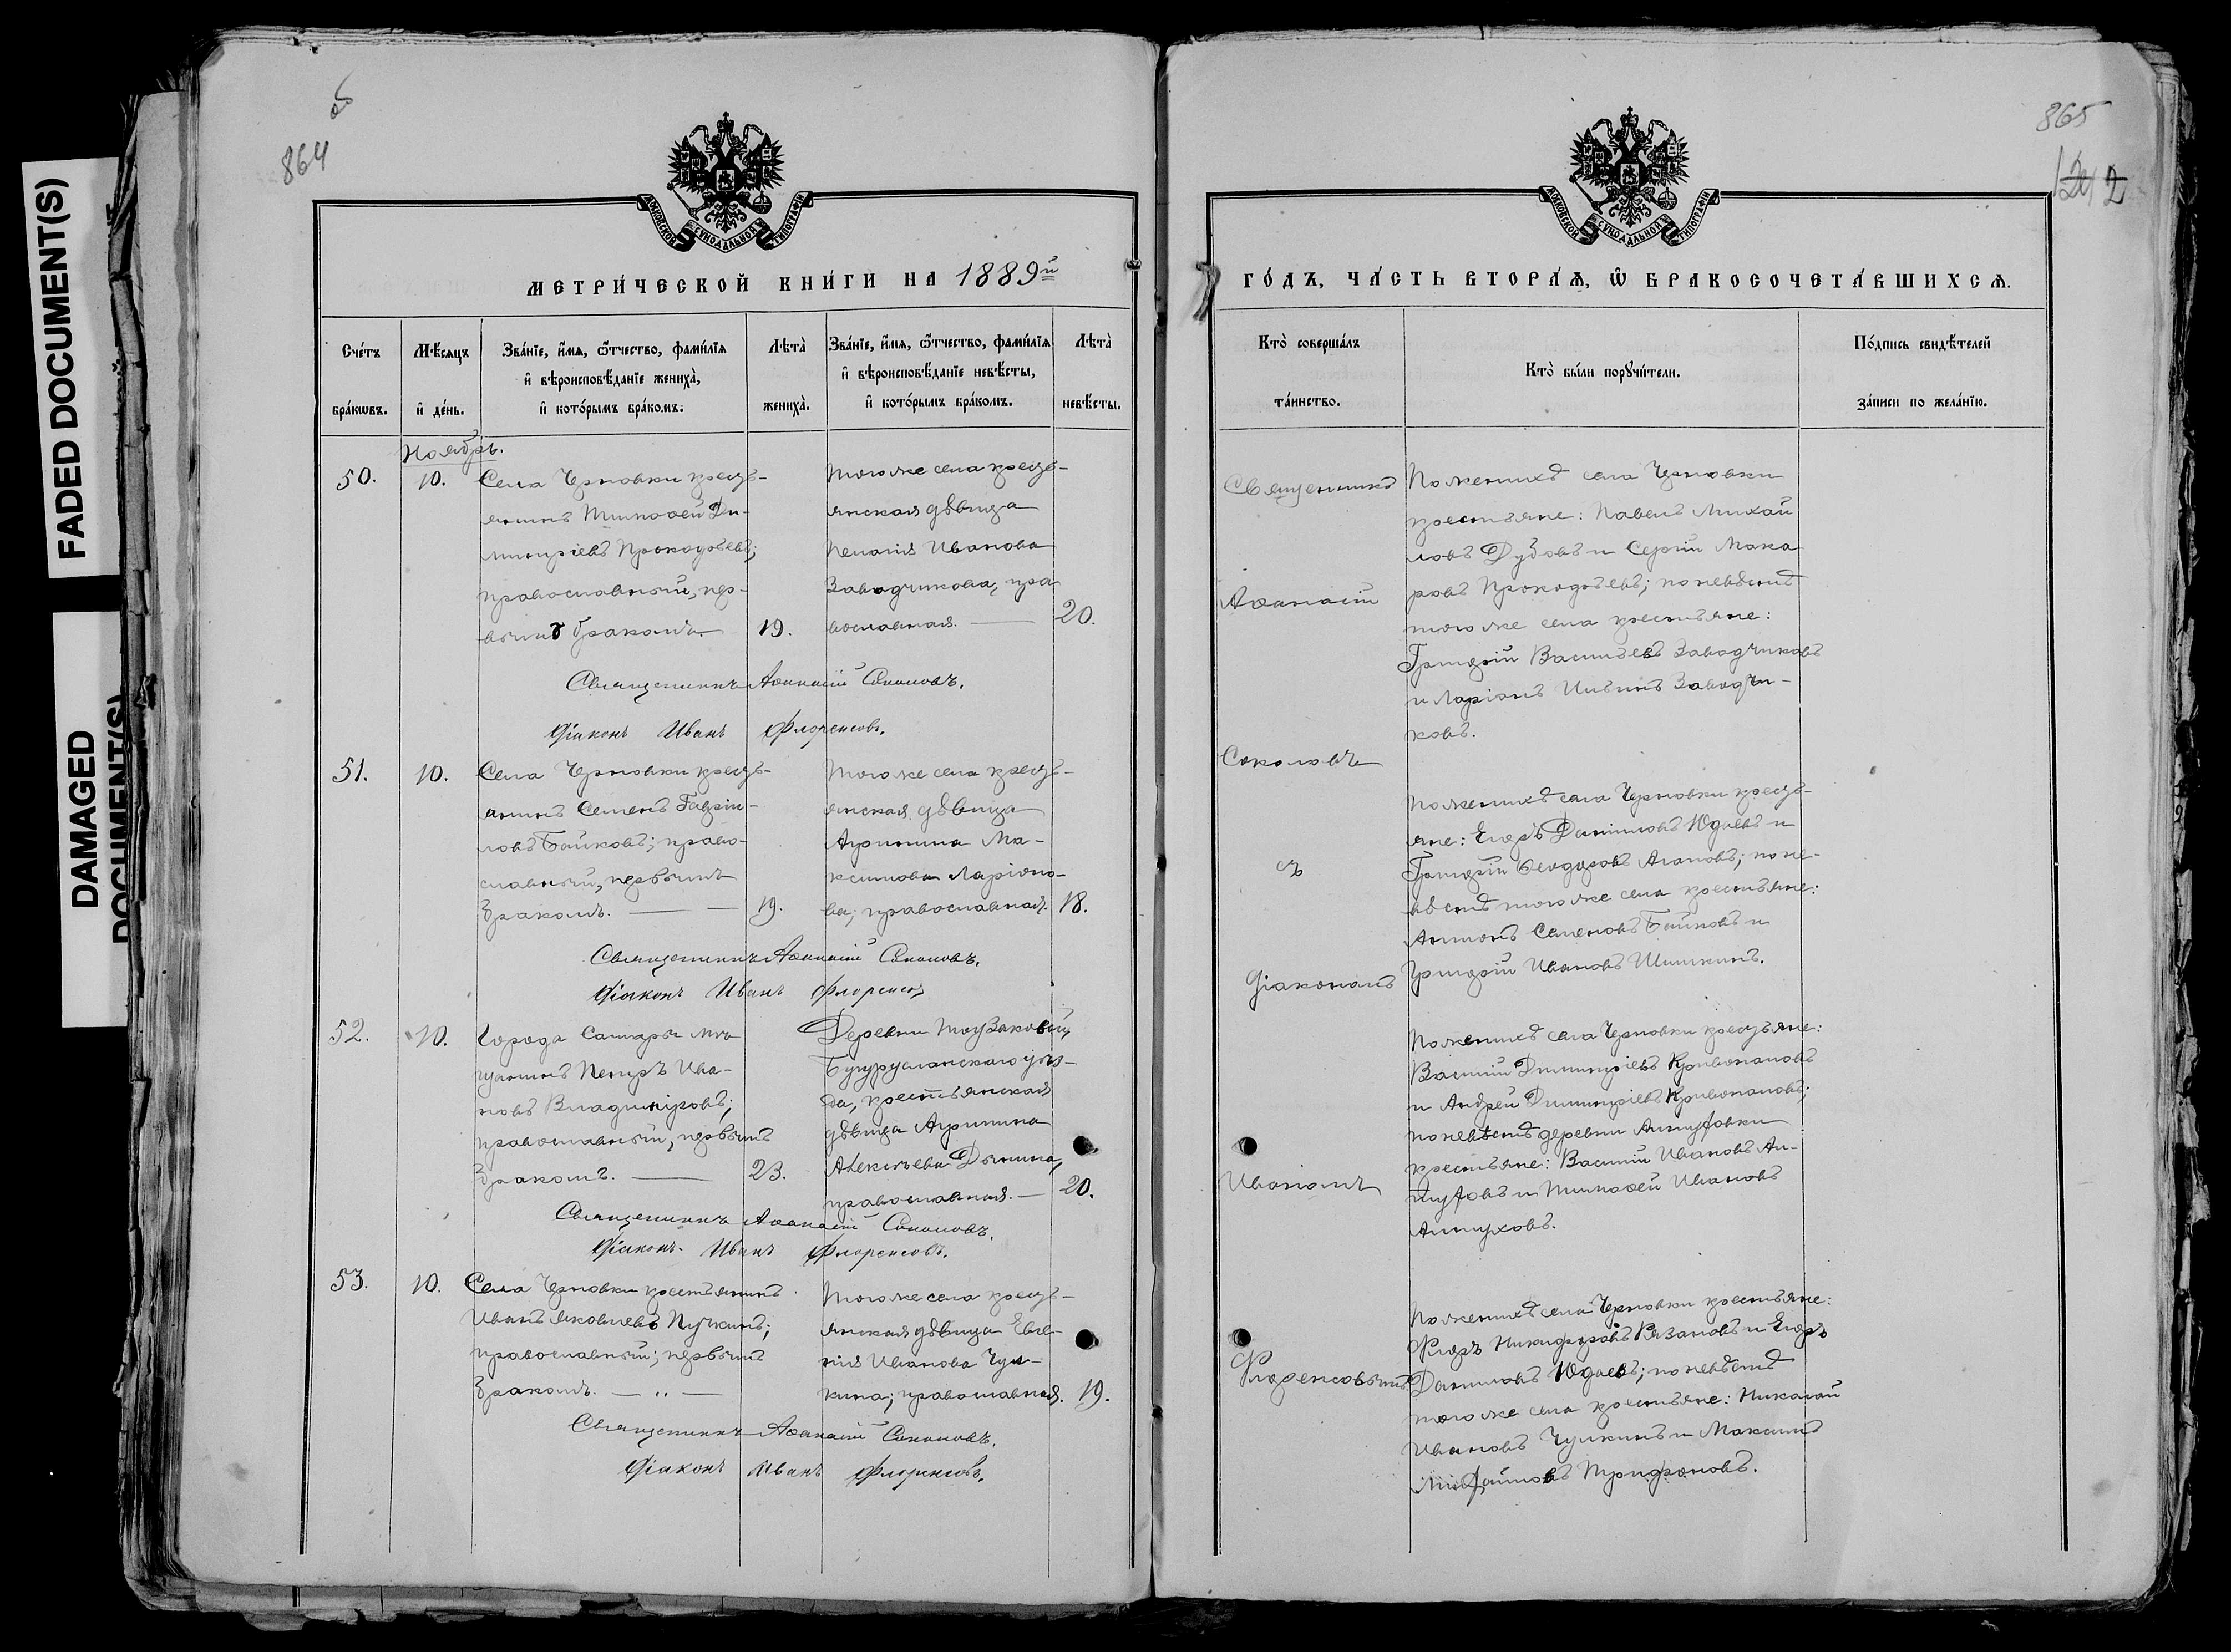 FADED DOCUMENT(S)
DAMAGED
DOCUMENT(S)
864
об
МОСКОВСКОЙ СУНОДАЛЬНОЙ ТИПОГРАФІИ
МЕТРИ́ЧЕСКОЙ КНИ́ГИ НА 1889й
Сче́тъ
бра́кѡвъ.
Мѣ́сяцъ
и҆ де́нь.
Зва́нїе, и҆́мѧ, ѻ҆́тчество, фами́лїѧ
и҆ вѣроисповѣ́данїе жениха̀,
и҆ кото́рымъ бра́комъ.
Лѣта̀
жениха̀.
Зва́нїе, и҆́мѧ, ѻ҆́тчество, фами́лїѧ
и҆ вѣроисповѣ́данїе невѣ́сты,
и҆ кото́рымъ бра́комъ.
Лѣта̀
невѣ́сты.
Ноябрь.
50.
10.
Села Черновки кресть-
янинъ Тимоѳей Ди-
митріевъ Прокофьевъ;
православный, пер-
вымъ бракомъ
19.
Того же села кресть-
янская дѣвица
Пелагія Иванова
Заводчикова, пра
вославная. —
20.
Священникъ Аѳанасій Соколовъ.
Діаконъ Иванъ Флоренсовъ.
51.
10.
Села Черновки кресть-
янинъ Семенъ Гаврии-
ловъ Байковъ; право-
славный, первымъ
бракомъ. — —
19.
Того же села кресть-
янская дѣвица
Агрипина Ма-
ксимова Ларіоно-
ва; православная.
18.
Священникъ Аѳанасій Соколовъ.
Діаконъ Иванъ Флоренсовъ
52.
10.
Города Самары мѣ
щанинъ Петръ Ива-
новъ Владиміровъ;
православный, первымъ
бракомъ. —
23.
Деревни
Бугурусланскаго уѣз-
да, крестьянская
дѣвица Агрипина
Алексѣева
православная. —
20.
Священникъ Аѳанасій Соколовъ.
Діаконъ Иванъ Флоренсовъ.
53.
10.
Села Черновки крестьянинъ
Иванъ Яковлевъ Пучкинъ;
православный; первымъ
бракомъ. — „ —
Того же села кресть-
янская дѣвица Евге-
нія Иванова Чул-
кина; православная.
19.
Священникъ Аѳанасій Соколовъ.
Діаконъ Иванъ Флоренсовъ.
865
МОСКОВСКОЙ СУНОДАЛЬНОЙ ТИПОГРАФІИ
ГО́ДЪ, ЧА́СТЬ ВТОРА́Ѧ, Ѡ҆ БРАКОСОЧЕТА́ВШИХСѦ.
Кто̀ соверша́лъ
та́инство.
Кто̀ бы́ли порꙋчи́тели.
По́дпись свидѣ́телей
за́писи по жела́нїю.
Священникъ
Аѳанасій
Соколовъ
съ
діакономъ
Иваномъ
Флоренсовымъ.
По женихѣ села Черновки
крестьяне: Павелъ Михай
ловъ Дубовъ и Сергій Мака
ровъ Прокофьевъ; по невѣстѣ
того же села крестьяне:
Григорій Васильевъ Заводчиковъ
и Ларіонъ Ильинъ Заводчи-
ковъ.
По женихѣ села Черновки кресть-
яне: Егоръ Данииловъ Юдаевъ и
Григорій Ѳеодоровъ Агаповъ; по не-
вѣстѣ того же села крестьяне:
Антонъ Семеновъ Байковъ и
Григорій Ивановъ Шишкинъ.
По женихѣ села Черновки крестьяне:
Василій Димитріевъ Кривопаловъ
и Андрей Димитріевъ Кривопаловъ;
по невѣстѣ деревни Алтуховки
крестьяне: Василій Ивановъ Ал-
туховъ и Тимоѳей Ивановъ
Алтуховъ.
По женихѣ села Черновки крестьяне:
Флоръ Никифоровъ Рязановъ и Егоръ
Данииловъ Юдаевъ; по невѣстѣ
того же села крестьяне: Николай
Ивановъ Чулкинъ и Максимъ
Михайловъ Трифоновъ.